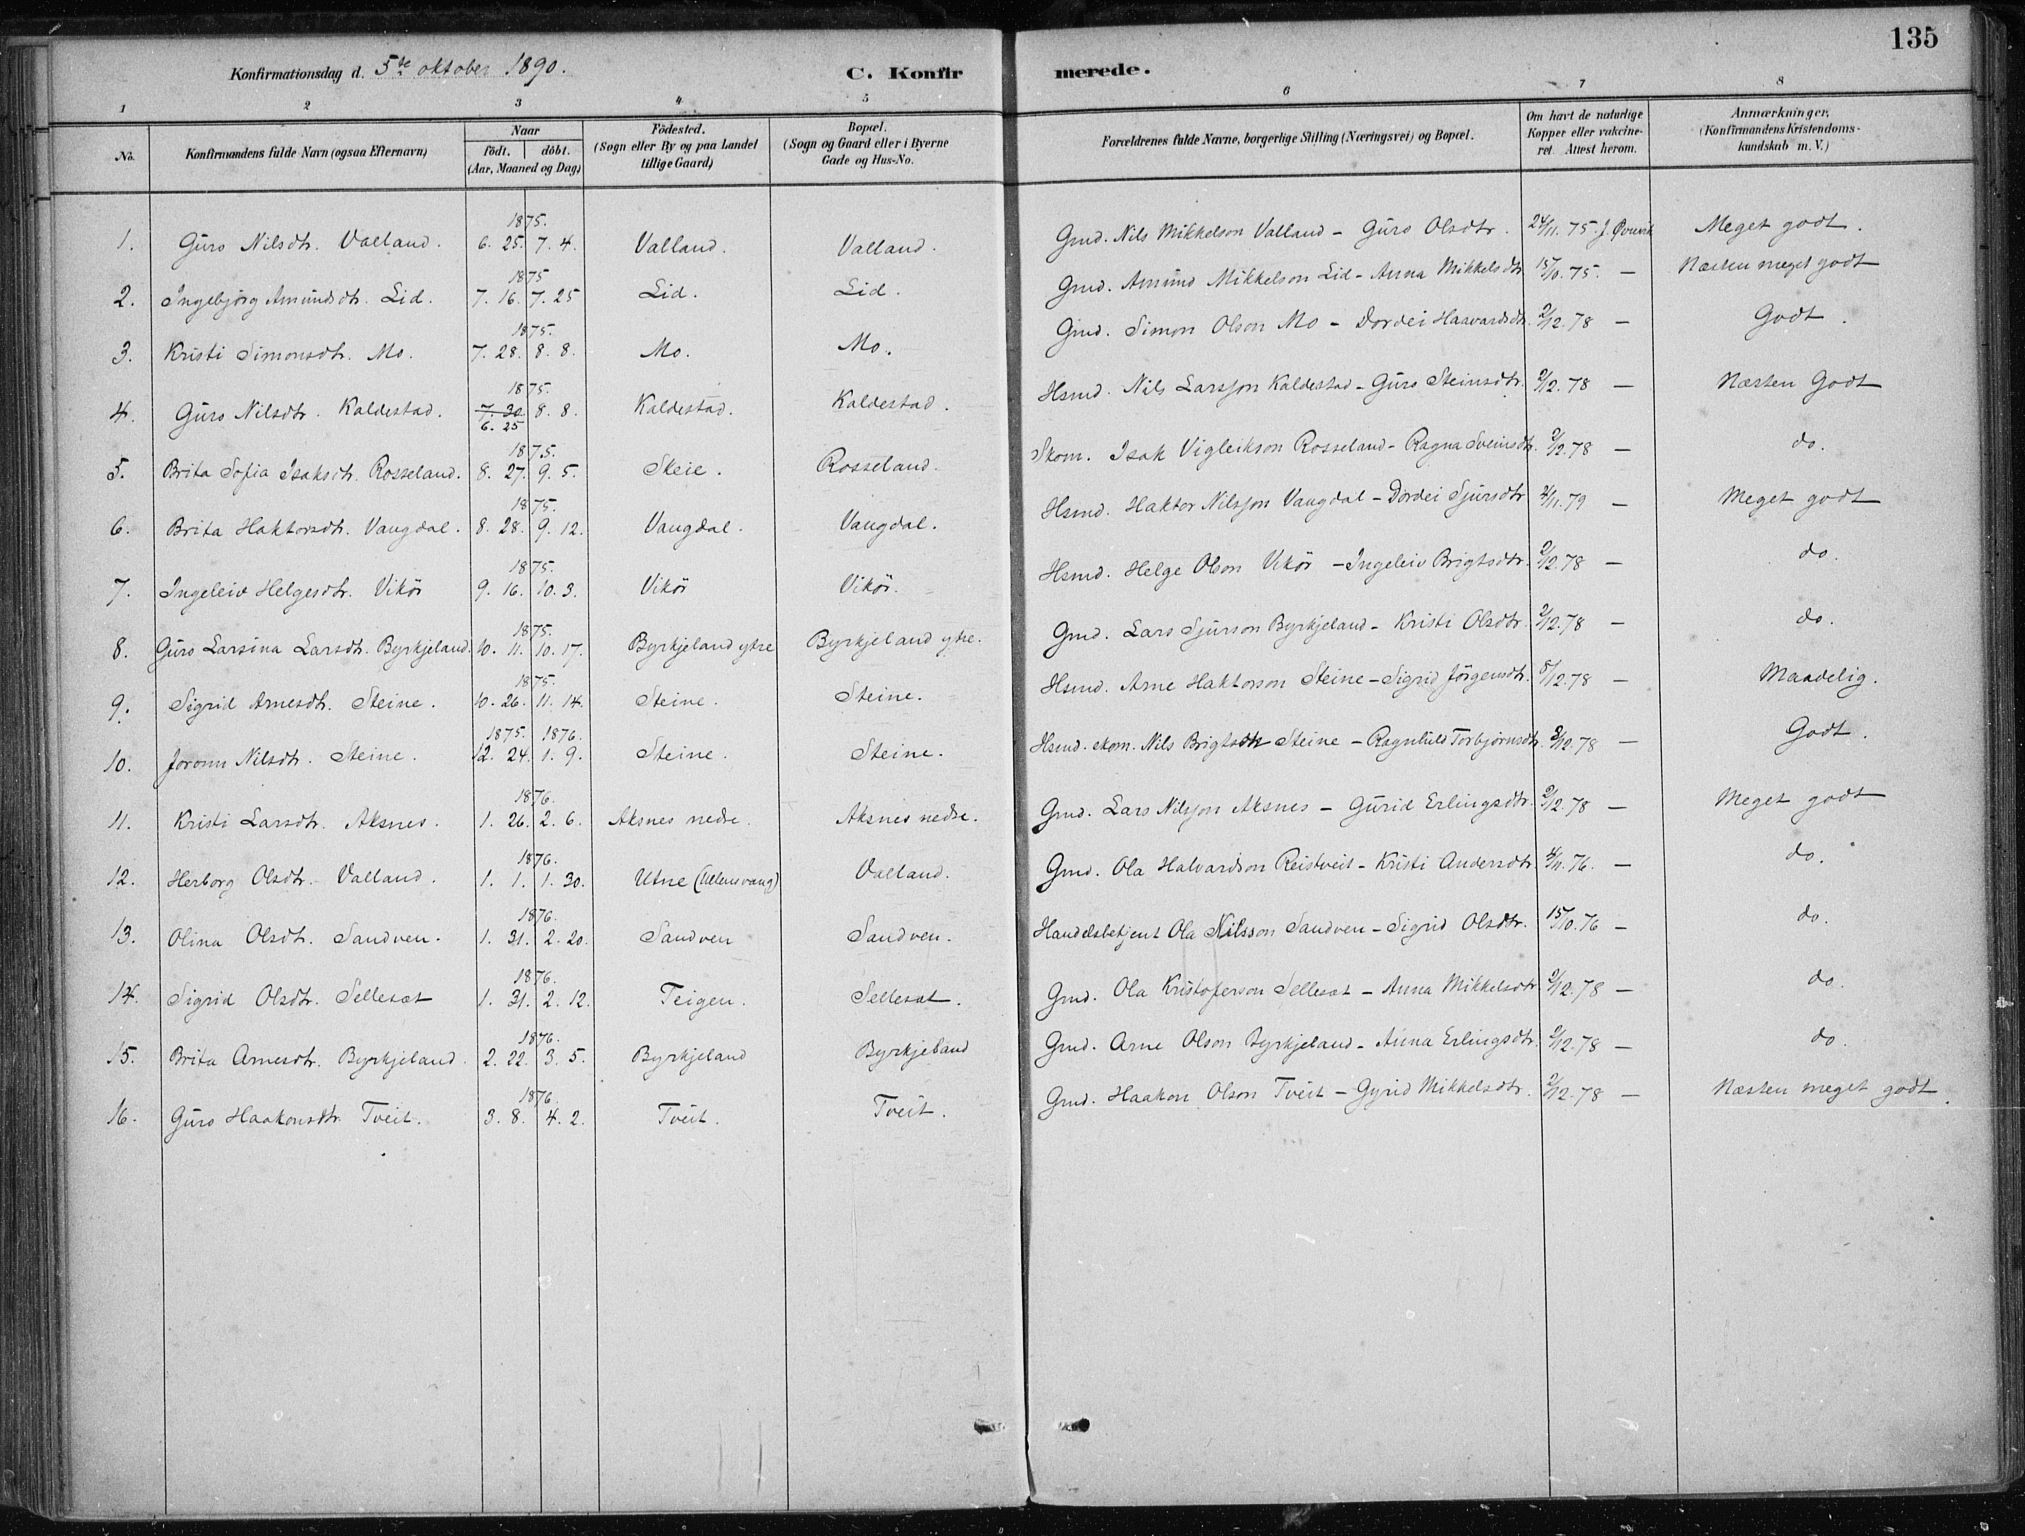 135
Konfirmationsdag d. 5te oktober 1890. C. Konfirmerede.
1 2 3 4 5 6 7 8
No. Konfirmandens fulde Navn (ogsaa Efternavn) Naar födt. döbt. (Aar, Maaned og Dag) Födested. (Sogn eller By og paa Landet tillige Gaard) Bopæl. (Sogn og Gaard eller i Byerne Gade og Hus-No. Forældrenes fulde Navne, borgerlige Stilling (Næringsvei) og Bopæl. Om havt de naturlige Kopper eller vakcineret. Attest herom. Anmærkninger. (Konfirmandens Kristendomskundskab m. V.)
1. Guro Nilsdtr. Valland. 1875. 6. 25. 7. 4. Valland. Valland. Gmd. Nils Mikkelson Valland - Guro Olsdtr. 24/11. 75. J. Øvrevik Meget godt.
2. Ingebjörg Amundsdtr. Lid. 1875 7. 16. 7. 25 Lid. Lid. Gmd. Amund Mikkelson Lid - Anna Mikkelsdtr. 15/10. 75. — Næsten meget godt
3. Kristi Simonsdtr. Mo. 1875. 7. 28. 8. 8. Mo. Mo. Gmd. Simon Olson Mo - Dordei Haavardsdtr. 2/12. 78 — Godt.
4. Guro Nilsdtr. Kaldestad. 1875. 7. 30 6. 25 8. 8. Kaldestad. Kaldestad. Hsmd. Nils Larsson Kaldestad - Guro Steinsdtr. 2/12. 78 — Næsten Godt
5. Brita Sofia Isaksdtr. Rosseland. 1875. 8. 27. 9. 5. Skeie. Rosseland. Skom. Isak Vigleikson Rosseland - Ragna Sveinsdtr. 2/12. 78 — do.
6. Brita Haktorsdtr. Vangdal. 1875. 8. 28. 9. 12. Vangdal. Vangdal. Hsmd. Haktor Nilsson Vangdal - Dordei Sjursdtr. 4/11. 79 — Meget godt
7. Ingeleiv Helgesdtr. Vikör 1875. 9. 16. 10. 3. Vikör Vikör. Hsmd. Helge Olson Vikör - Ingeleiv Brigtsdtr. 2/12. 78 — do.
8. Guro Larsina Larsdtr. Byrkjeland. 1875. 10. 11. 10. 17. Byrkjeland ytre Byrkjeland ytre. Gmd. Lars Sjurson Byrkjeland - Kristi Olsdtr. 2/12. 78 — do.
9. Sigrid Arnesdtr. Steine. 1875. 10. 26. 11. 14. Steine. Steine. Hsmd. Arne Haktorson Steine - Sigrid Jörgensdtr. 5/12. 78 — Maadelig.
10. Joronn Nilsdtr. Steine. 1875. 1876. 12. 24. 1. 9. Steine. Steine. Hsmd. skom. Nils Brigtsdtr Steine - Ragnhild Torbjörnsdtr. 2/12. 78 — Godt.
11. Kristi Larsdtr. Aksnes. 1876. 1. 26. 2. 6. Aksnes nedre. Aksnes nedre. Gmd. Lars Nilsson Aksnes - Gurid Erlingsdtr. 2/12. 78 — Meget godt
12. Herborg Olsdtr. Valland. 1876. 1. 1. 1. 30. Utne (Ullensvang) Valland. Gmd. Ola Halvardson Reistveit - Kristi Andersdtr. 4/11. 76. — do.
13. Olina Olsdtr. Sandven. 1876. 1. 31. 2. 20. Sandven Sandven. Handelsbetjent Ola Nilsson Sandven - Sigrid Olsdtr. 15/10. 76 — do.
14. Sigrid Olsdtr. Sellesæt 1876. 1. 31. 2. 12. Teigen. Sellesæt. Gmd. Ola Kristoferson Sellesæt - Anna Mikkelsdtr 2/12. 78 — do.
15. Brita Arnesdtr. Byrkjeland. 1876. 2. 22. 3. 5. Byrkjeland Byrkjeland Gmd. Arne Olson Byrkjeland - Anna Erlingsdtr. 2/12. 78 — do.
16. Guro Haakonsdtr. Tveit. 1876. 3. 8. 4. 2. Tveit. Tveit. Gmd. Haakon Olson Tveit - Gyrid Mikkelsdtr. 2/12. 78 — Næsten meget godt.